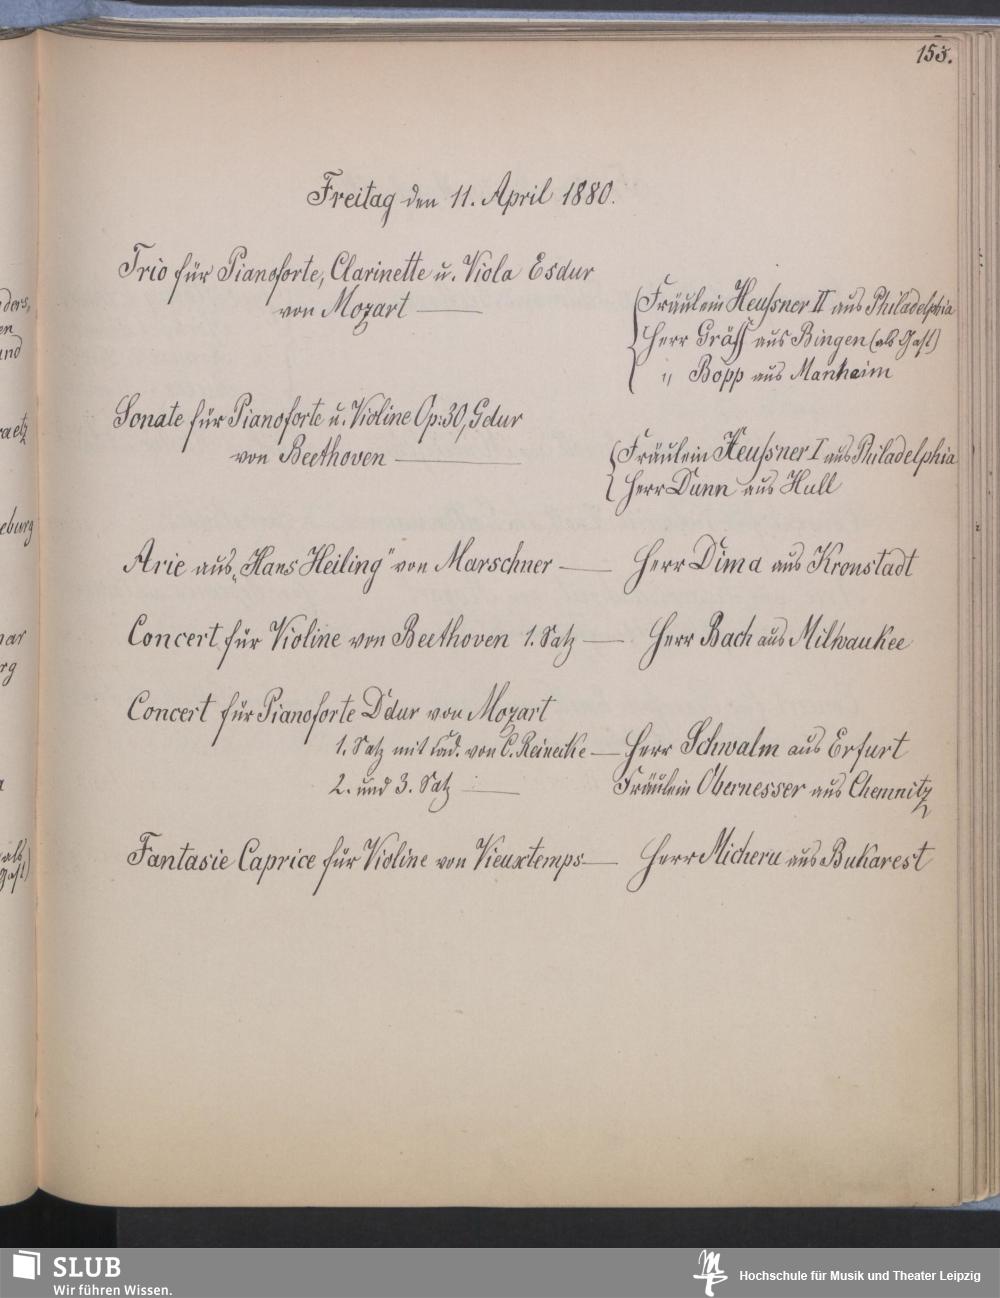 153.
Freitag den 11. April 1880.
Trio für Pianoforte, Clarinette u. Viola Esdur
von Mozart —
Fräulein Heußner II aus Philadelphia
Herr Gräff aus Bingen (als Gast)
" Bopp aus Manheim
Sonate für Pianoforte u. Violine Op: 30, Gdur
von Beethoven —
Fräulein Heußner I aus Philadelphia
Herr Dunn aus Hull
Arie aus „Hans Heiling" von Marschner — Herr Dima aus Kronstadt
Concert für Violine von Beethoven 1. Satz — Herr Bach aus Milwaukee
Concert für Pianoforte Ddur von Mozart
1. Satz mit Cad. von C. Reinecke — Herr Schwalm aus Erfurt
2. und 3. Satz — Fräulein Obernesser aus Chemnitz
Fantasie Caprice für Violine von Vieuxtemps — Herr Micheru aus Bukarest
SLUB
Wir führen Wissen.
Hochschule für Musik und Theater Leipzig